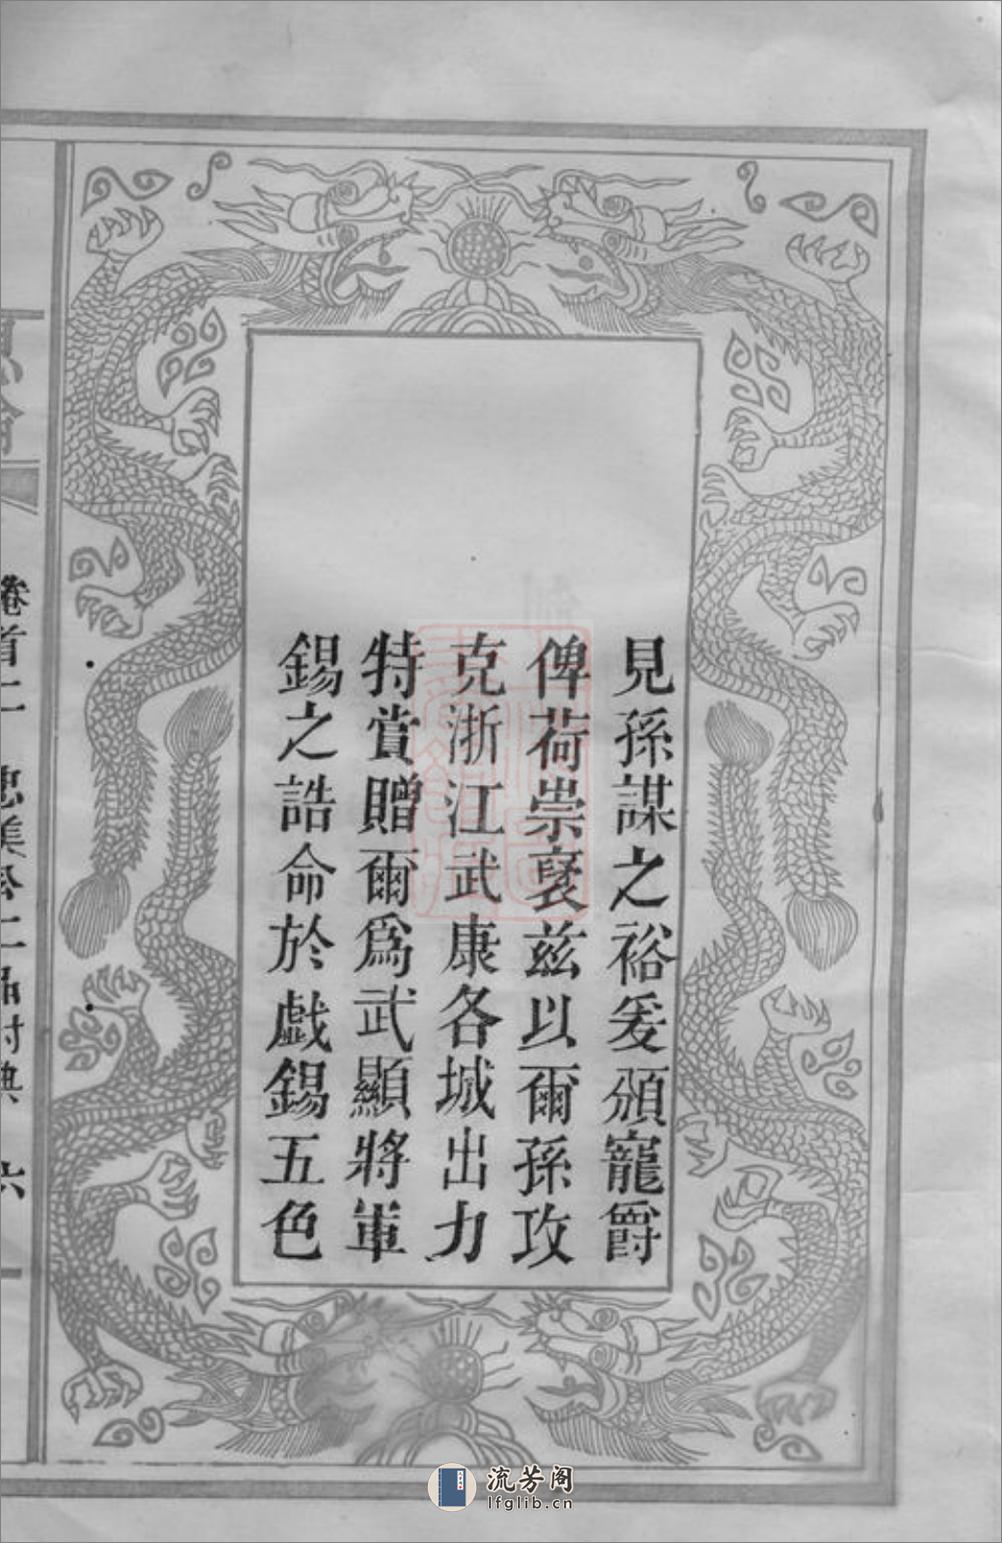 見孫謀之裕爰頒寵爵
俾荷崇襃兹以爾孫攻
克浙江武康各城出力
特賞贈爾爲武顯將軍
錫之誥命於戲錫五色
卷首二 忠義公二品封典 六
流芳阁
lfglib.cn